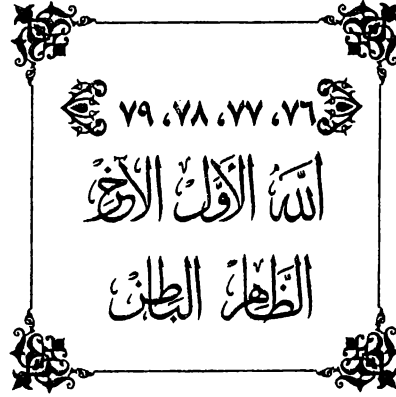 ٧٦، ٧٧، ٧٨، ٧٩
اللَّهُ الْأَوَّلُ الْآخِرُ
الظَّاهِرُ الْبَاطِنُ